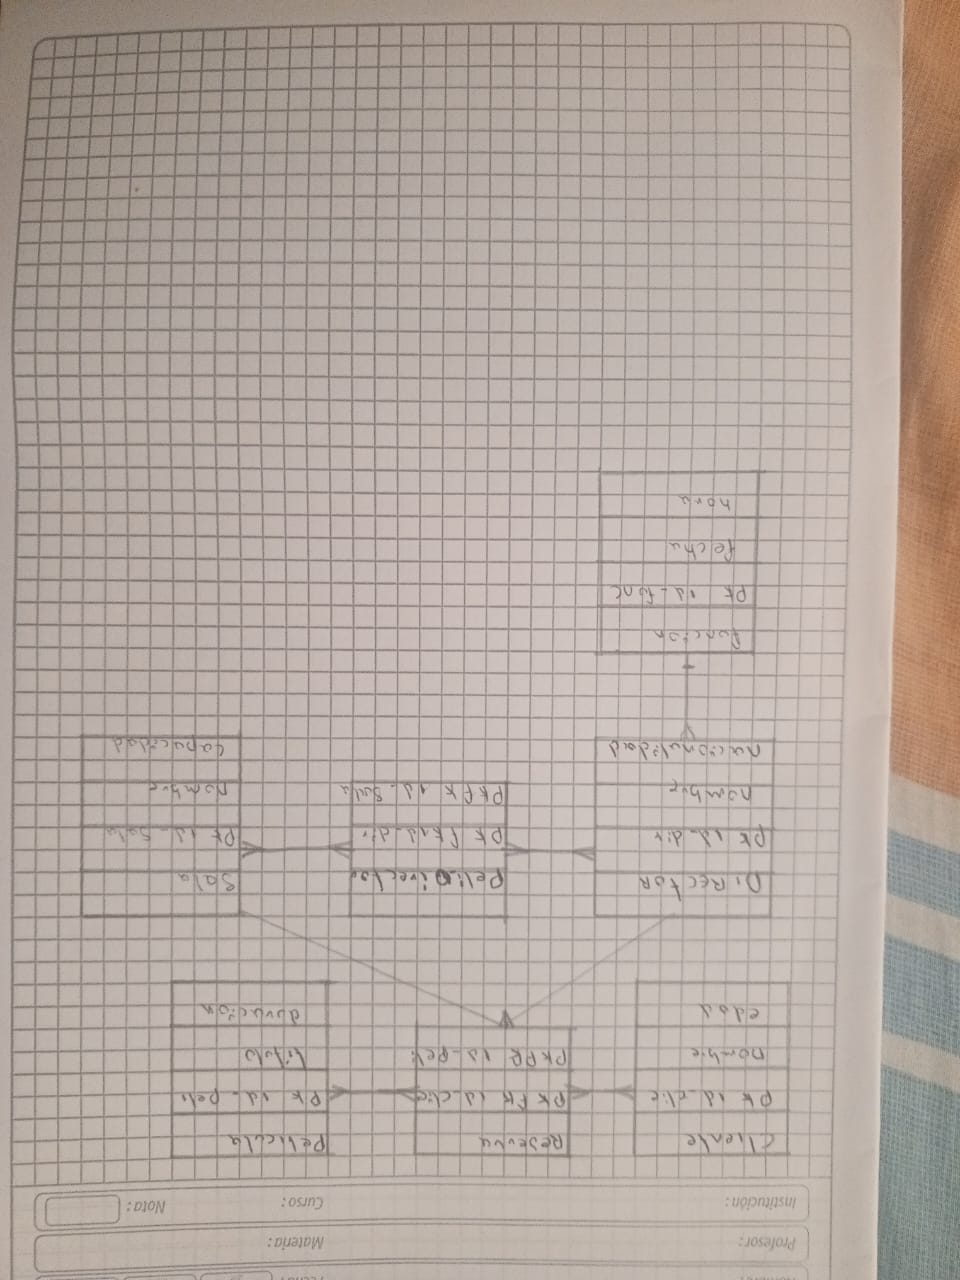 Profesor:
Materia:
Institución:
Curso:
Nota:
Cliente
PK id_clie
nombre
edad
Reserva
PK FK id_clie
PK FK id_peli
Pelicula
PK id_peli
titulo
duración
DIRECTOR
PK id_dir
nombre
nacionalidad
PeliDirector
PK FK id_dir
PK FK id_Sala
Sala
PK id_Sala
nombre
capacidad
función
PK id_func
fecha
hora